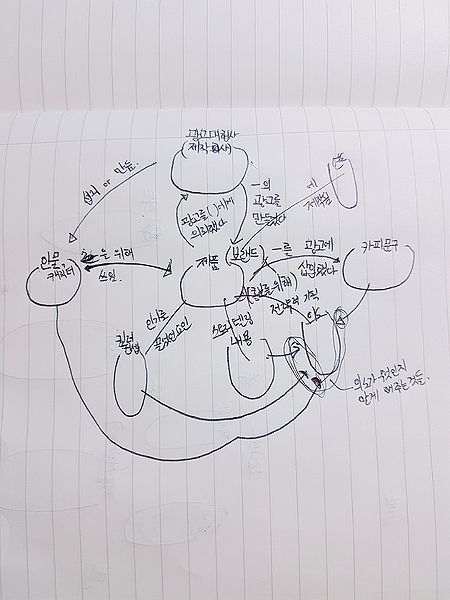 광고대행사
(제작회사)
섭외 or 만듦.
년
에
제작됨
―의
광고를
만들었다
광고를( )에게
의뢰했다
인물,
캐릭터
을 위해
쓰임.
제품
(브랜드)
―를
광고에
삽입했다
카피문구
( 를 위해)
전략적 기획
인기를
끌었던 요인
스토리텔링
내용
의도가 무엇인지
알게 해주는 것들.